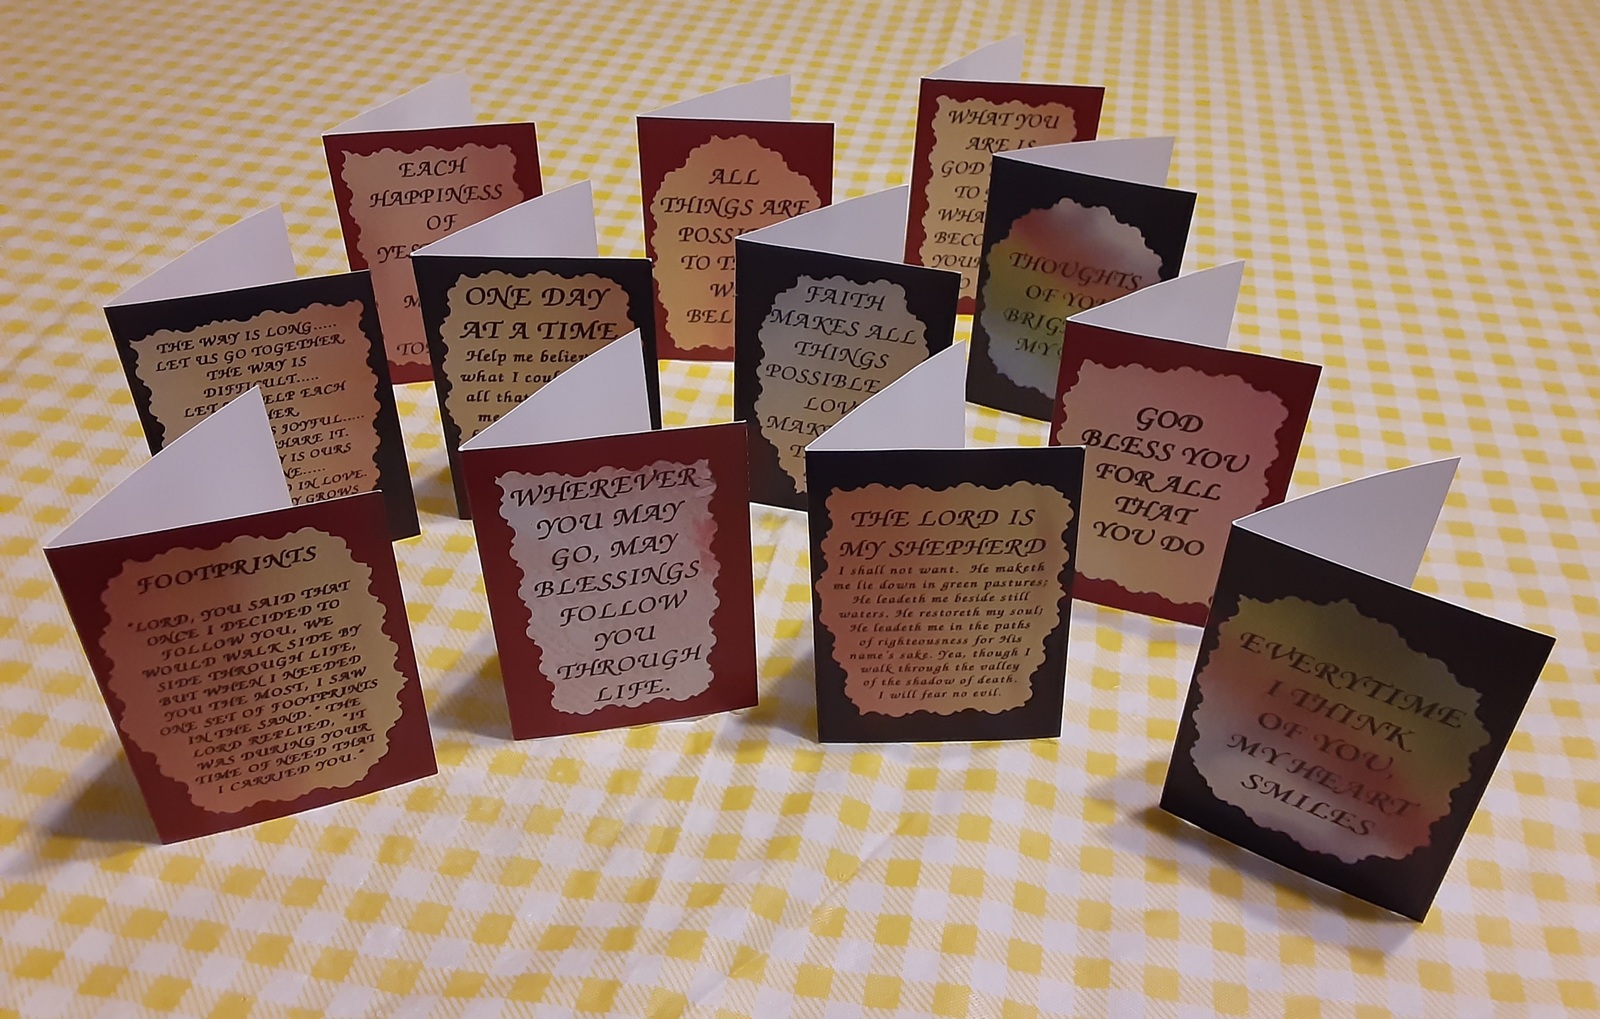 EACH
HAPPINESS
OF
ALL
THINGS ARE
TO
BEL
WHAT YOU
ARE IS
GOD
TO
THE WAY IS LONG.....
LET US GO TOGETHER
THE WAY IS
DIFFICULT.....
LET HELP EACH
JOYFUL.....
SHARE IT.
IS OURS
IN LOVE.
GROWS
ONE DAY
AT A TIME
Help me
what I
all that
me
FAITH
MAKES ALL
THINGS
POSSIBLE
THOUGHTS
OF
MY
GOD
BLESS YOU
FOR ALL
THAT
YOU DO
FOOTPRINTS
"LORD, YOU SAID THAT
ONCE I DECIDED TO
FOLLOW YOU, WE
WOULD WALK SIDE BY
SIDE THROUGH LIFE,
BUT WHEN I NEEDED
YOU THE MOST, I SAW
ONE SET OF FOOTPRINTS
IN THE SAND." THE
LORD REPLIED, "IT
WAS DURING YOUR
TIME OF NEED THAT
I CARRIED YOU."
WHEREVER
YOU MAY
GO, MAY
BLESSINGS
FOLLOW
YOU
THROUGH
LIFE.
THE LORD IS
MY SHEPHERD
I shall not want. He maketh
me lie down in green pastures;
He leadeth me beside still
waters. He restoreth my soul;
He leadeth me in the paths
of righteousness for His
name's sake. Yea, though I
walk through the valley
of the shadow of death,
I will fear no evil.
EVERYTIME
I THINK
OF YOU,
MY HEART
SMILES